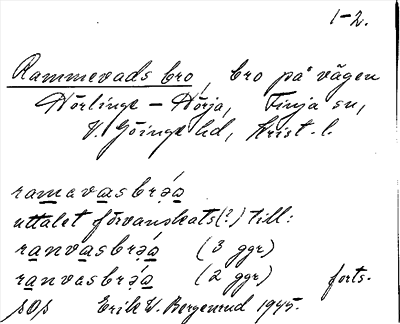 1-2.
Rammevads bro, bro på vägen
Hörlinge - Hörja, Finja sn,
V. Göinge hd, Krist. l.
ramevasbrəa
uttalet förvanskats(?) till:
ranvasbrəa (3 ggr)
ranvasbrəa (2 ggr) forts.
Erik W. Bergenrud 1945.